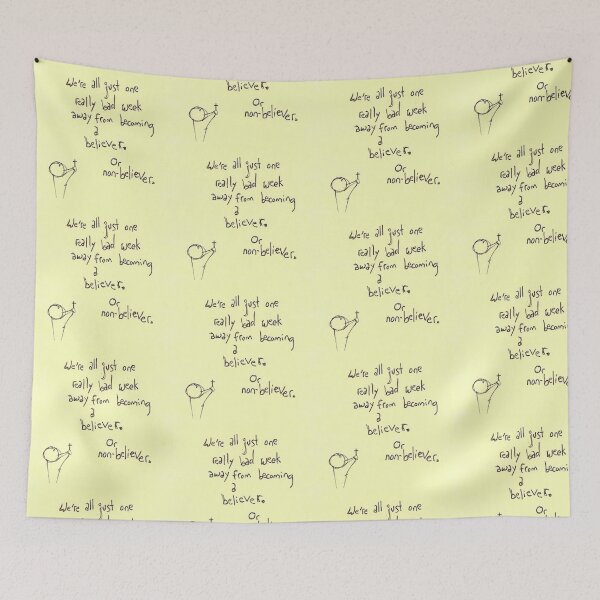 We're all just one
really bad week
away from becoming
a
believer.
Or
non-believer.
We're all just one
really bad week
away from becoming
a
believer.
Or
non-believer.
We're all just one
really bad week
away from becoming
a
believer.
Or
non-believer.
We're all just one
believer.
Or
non-believer.
We're all just one
really bad week
away from becoming
a
believer.
Or
non-believer.
We're all just one
really bad week
away from becoming
a
believer.
Or
non-believer.
We're all just one
really bad week
away from becoming
a
believer.
Or
We're all just one
really bad week
away from becoming
a
believer.
Or
non-believer.
We're all just one
really bad week
away from becoming
a
believer.
Or
non-believer.
We're all just one
really bad week
away from becoming
a
believer.
Or
non-believer.
We're all just one
believer.
Or
non-believer
We're all just one
really bad week
away from becomin
a
believer.
Or
non-believer.
We're all just one
really bad week
away from becomin
a
believer.
Or
non-believer.
We're all just one
really bad week
away from becomin
a
believer.
Or